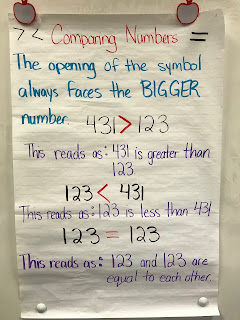 > < Comparing Numbers =
The opening of the symbol
always faces the BIGGER
number.
431 > 123
This reads as: 431 is greater than
123
123 < 431
This reads as: 123 is less than 431
123 = 123
This reads as: 123 and 123 are
equal to each other.